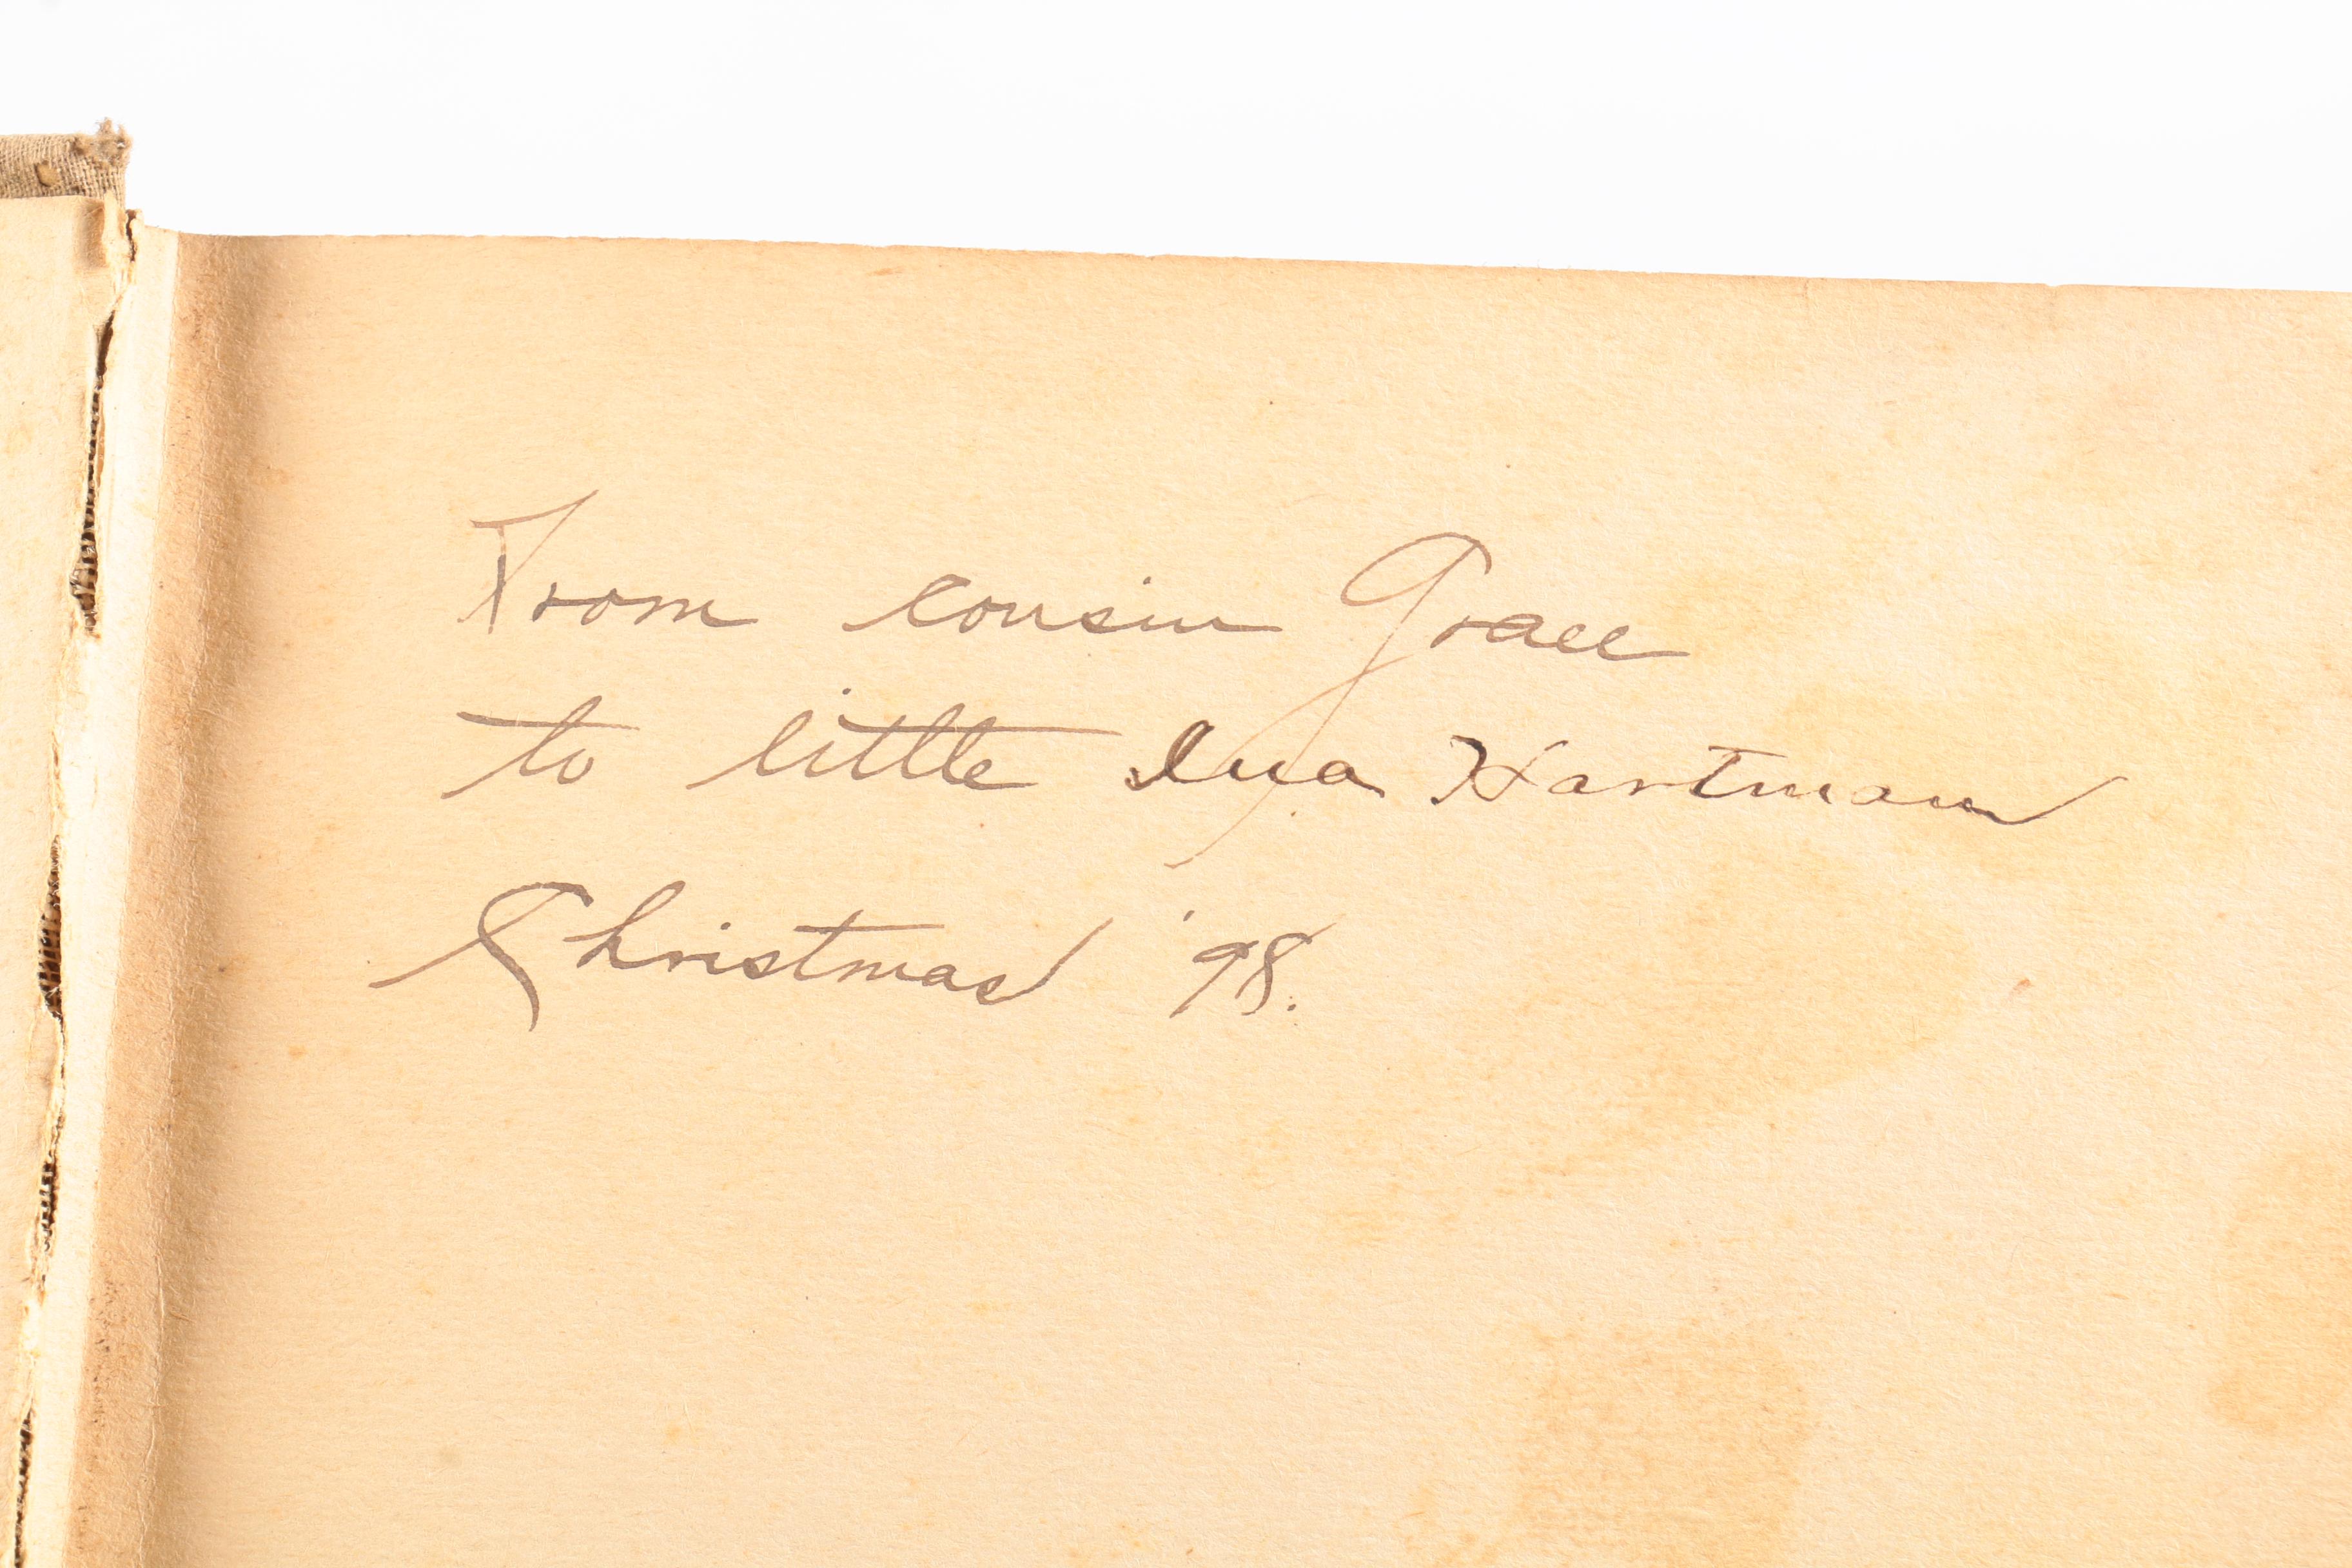 From cousin Grace
to little Iva Hartman
Christmas '98.